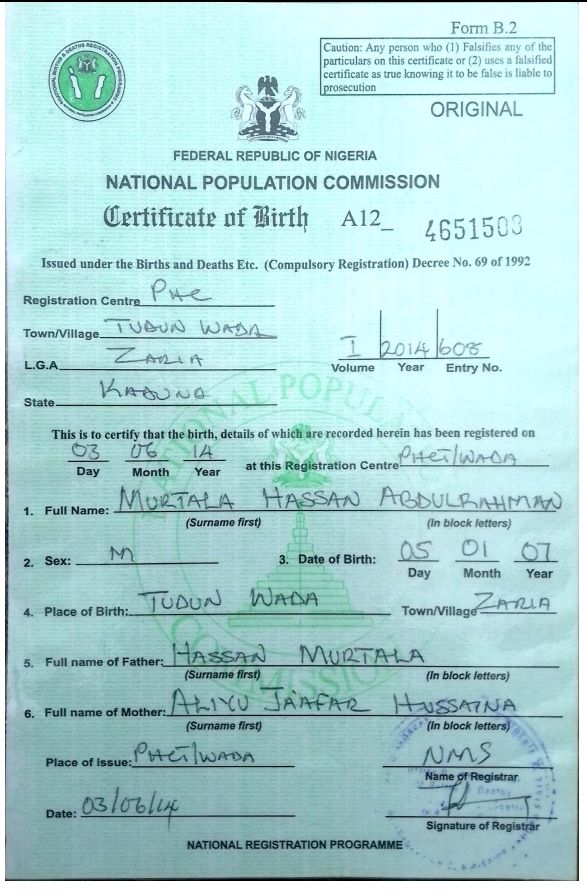 Form B.2
Caution: Any person who (1) Falsifies any of the
particulars on this certificate or (2) uses a falsified
certificate as true knowing it to be false is liable to
prosecution
ORIGINAL
FEDERAL REPUBLIC OF NIGERIA
NATIONAL POPULATION COMMISSION
Certificate of Birth A12_ 4651503
Issued under the Births and Deaths Etc. (Compulsory Registration) Decree No. 69 of 1992
Registration Centre PHC
Town/Village TUDUN WADA
L.G.A ZARIA
I 2014 608
Volume Year Entry No.
State KADUNA
NATIONAL POPULATION COMMISSION
This is to certify that the birth, details of which are recorded herein has been registered on
03 06 14 at this Registration Centre PHCT/WADA
Day Month Year
1. Full Name: MURTALA HASSAN ABDULRAHMAN
(Surname first) (In block letters)
2. Sex: M 3. Date of Birth: 05 01 07
Day Month Year
4. Place of Birth: TUDUN WADA Town/Village ZARIA
5. Full name of Father: HASSAN MURTALA
(Surname first) (In block letters)
6. Full name of Mother: ALIYU JA'AFAR HUSSAINA
(Surname first) (In block letters)
Place of issue: PHCT/WADA NMS
Name of Registrar
Date: 03/06/14
Signature of Registrar
NATIONAL REGISTRATION PROGRAMME